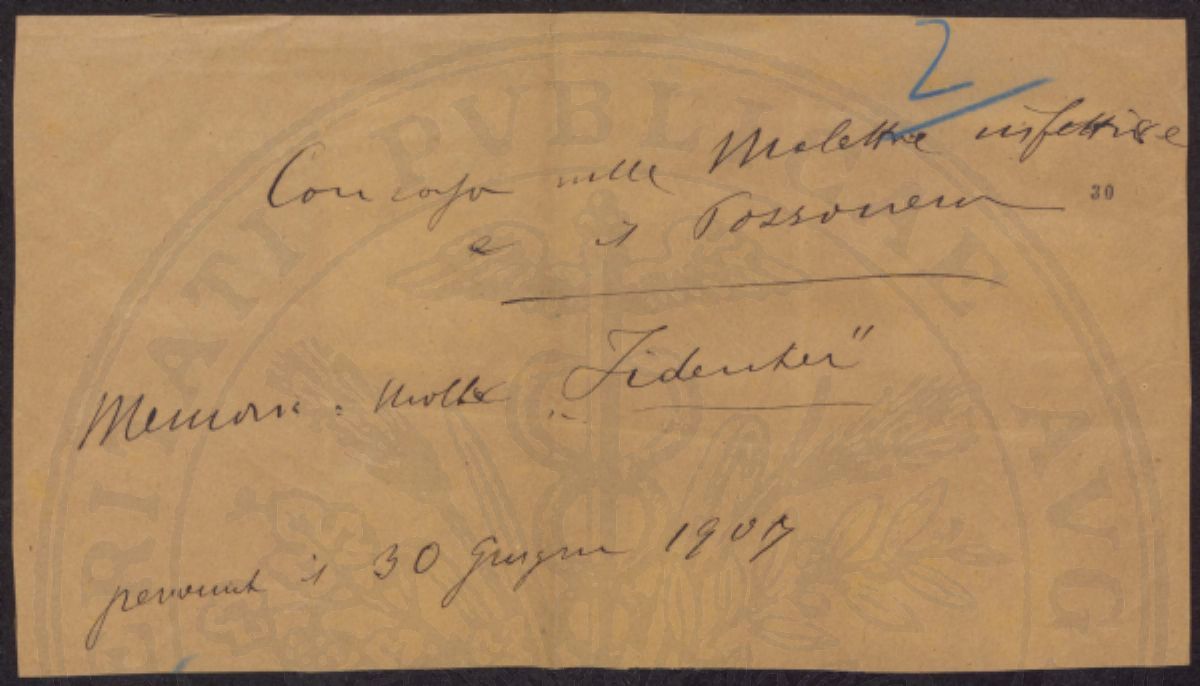 2
Concorso sulle Malattie infettive
30
e il Possonem
Memoria: Motto
"Fidenter"
pervenut il 30 Giugno 1907
PVBLICAE